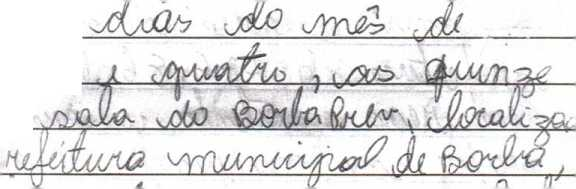 dias do mês de
e quatro, as quinze
sala do Borba Prev, localiza
refeitura municipal de Borba,